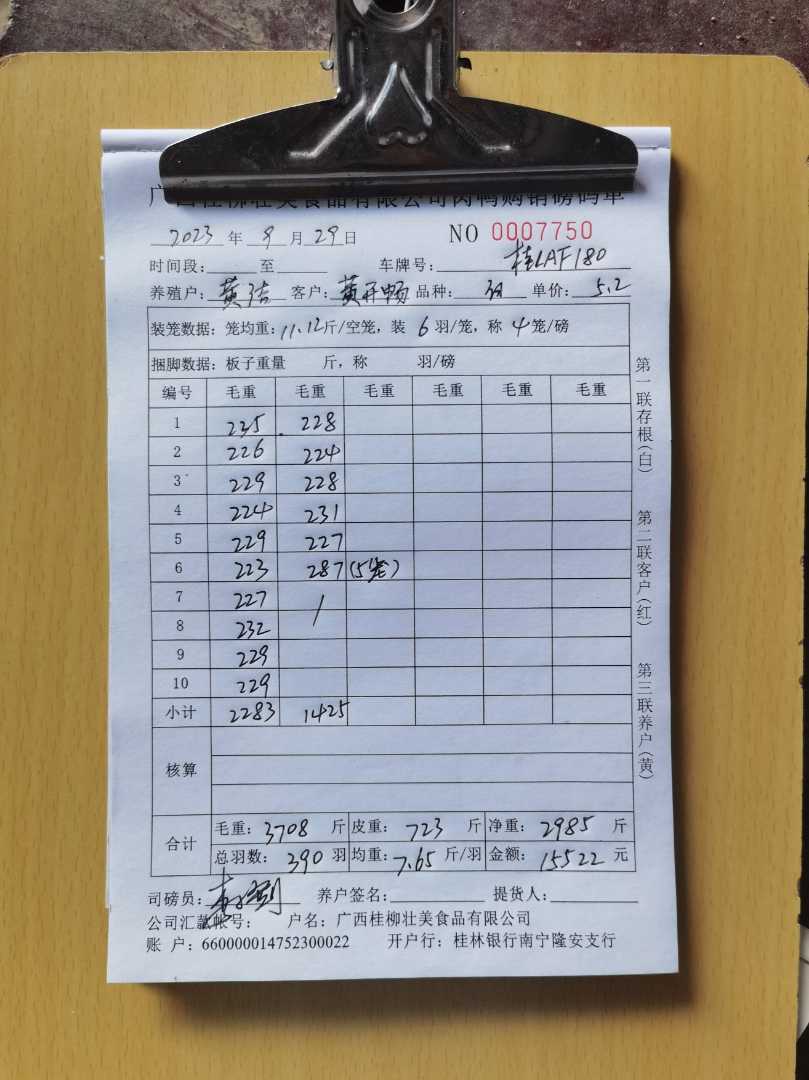 广西桂柳壮美食品有限公司肉鸭购销磅码单
2023 年 9 月 29 日 NO 0007750
时间段: 至 车牌号: 桂LAF180
养殖户: 黄洁 客户: 黄开畅 品种: 单价: 5.2
装笼数据: 笼均重: 11.12斤/空笼, 装 6 羽/笼, 称 4 笼/磅
捆脚数据: 板子重量 斤, 称 羽/磅
编号 毛重 毛重 毛重 毛重 毛重 毛重
1 235 228
2 226 224
3 229 228
4 224 231
5 229 227
6 223 287 (5笼)
7 227 /
8 232
9 229
10 229
小计 2283 1425
核算
合计 毛重: 3708 斤 皮重: 723 斤 净重: 2985 斤
总羽数: 390 羽 均重: 7.65 斤/羽 金额: 15522 元
司磅员: 养户签名: 提货人:
公司汇款帐号: 户名: 广西桂柳壮美食品有限公司
账 户: 660000014752300022 开户行: 桂林银行南宁隆安支行
第一联存根(白)
第二联客户(红)
第三联养户(黄)